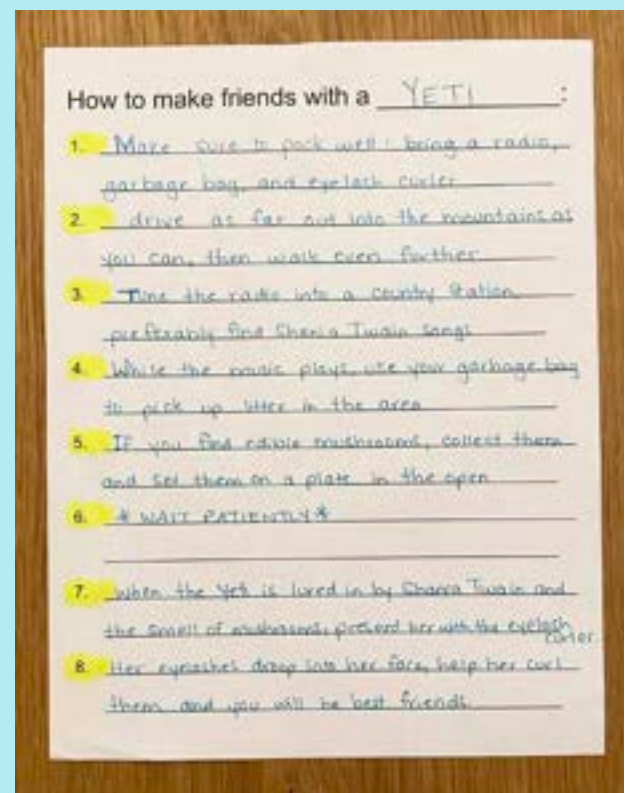 How to make friends with a YETI :
1. Make sure to pack well: bring a radio,
garbage bag, and eyelash curler
2. drive as far out into the mountains as
you can, then walk even further
3. Tune the radio into a country station
preferably find Shania Twain songs
4. While the music plays, use your garbage bag
to pick up litter in the area
5. If you find edible mushrooms, collect them
and set them on a plate in the open
6. * WAIT PATIENTLY *
7. When the Yeti is lured in by Shania Twain and
the smell of mushrooms, present her with the eyelash
curler
8. Her eyelashes droop into her face, help her curl
them and you will be best friends.